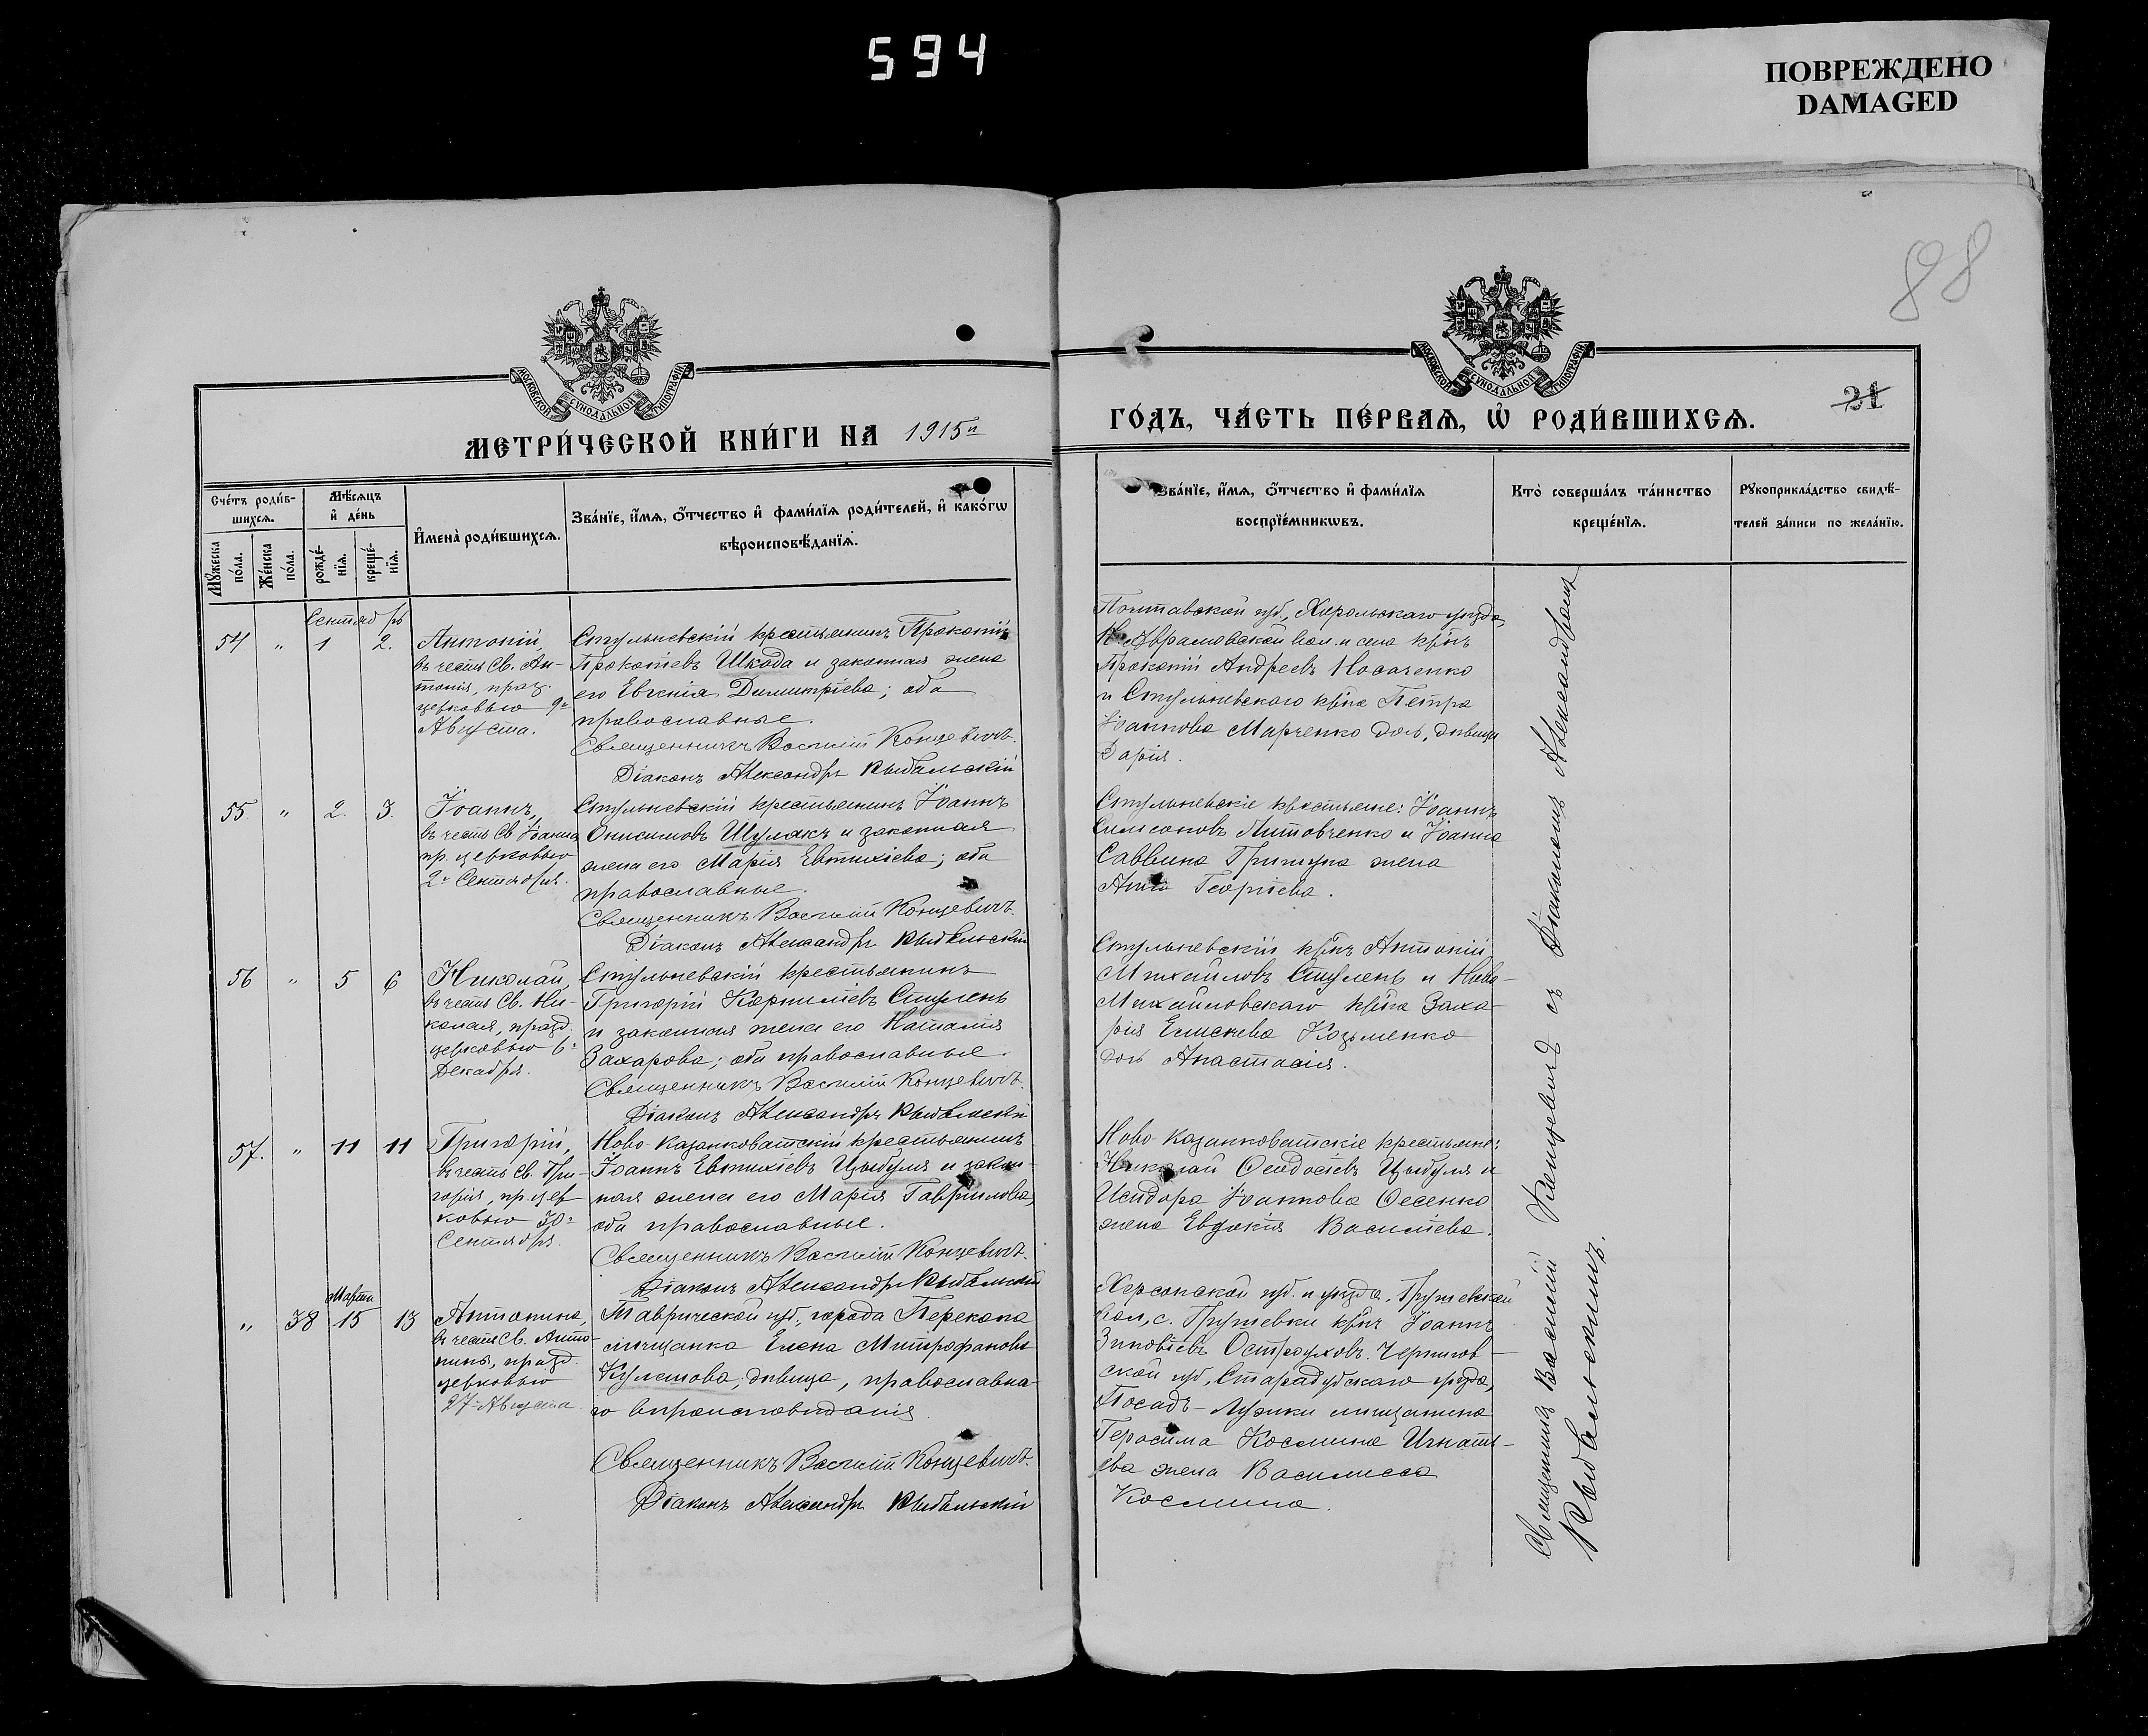 594
ПОВРЕЖДЕНО
DAMAGED
88
МОСКОВСКОЙ СѴНОДАЛЬНОЙ ТИПОГРАФІИ
МОСКОВСКОЙ СѴНОДАЛЬНОЙ ТИПОГРАФІИ
МЕТРИ́ЧЕСКОЙ КНИ́ГИ НА 1915й
ГО́ДЪ, ЧА́СТЬ ПЕ́РВАѦ, Ѡ҆ РОДИ́ВШИХСѦ.
21
Сче́тъ роди́в-
шихсѧ.
Мѣ́сѧцъ
и҆ де́нь
Мꙋ́жеска
по́ла.
Же́нска
по́ла.
рожде́-
нїѧ.
креще́-
нїѧ.
И҆мена̀ роди́вшихсѧ.
Зва́нїе, и҆́мѧ, ѻ҆́тчество и҆ фами́лїѧ роди́телей, и҆ како́гѡ
вѣроисповѣ́данїѧ.
Зва́нїе, и҆́мѧ, ѻ҆́тчество и҆ фами́лїѧ
воспрїе́мникѡвъ.
Кто̀ соверша́лъ та́инство
креще́нїѧ.
Рꙋкоприкла́дство свидѣ́-
телей за́писи по жела́нїю.
Сентябрь
54 " 1 2.
Антоній,
въ честь Св. Ан-
тонія, праз.
церковью 9го
Августа.
Стульневскій крестьянинъ Прокопій
Прокопіевъ Шкода и законная жена
его Евгенія Димитріева; оба
православные.
Священникъ Василій Концевичъ.
Діаконъ Александръ Кыбальскій
Полтавской губ., Хорольскаго уѣзда,
вол. и села кр-нъ
Прокопій Андреевъ Носаченко
и Стульневскаго кр-на Петра
Іоаннова Марченко дочь, дѣвица
Дарія.
55 " 2. 3.
Іоаннъ,
въ честь Св. Іоанна
пр. церковью
2го Сентября.
Стульневскій крестьянинъ Іоаннъ
Онисимовъ Шулякъ и законная
жена его Марія Евтихіева; оба
православные.
Священникъ Василій Концевичъ.
Діаконъ Александръ Кыбальскій
Стульневскіе крестьяне: Іоаннъ
Симеоновъ Литовченко и Іоанна
Саввина Грицуна жена
Анна Георгіева.
56 " 5 6
Николай,
въ честь Св. Ни-
колая, празд.
церковью 6го
Декабря.
Стульневскій крестьянинъ
Григорій Корниліевъ Стулень
и законная жена его Наталія
Захарова; оба православные.
Священникъ Василій Концевичъ.
Діаконъ Александръ Кыбальскій
Стульневскій кр-нъ Антоній
Михайловъ Стулень и Ново-
Михайловскаго кр-на Заха-
рія Елисеева Козьменко
дочь Анастасія.
57. " 11 11
Григорій,
въ честь Св. Гри-
горія, пр. цер-
ковью 30го
Сентября.
Ново-Казанковатскій крестьянинъ
Іоаннъ Евтихіевъ Цыбуля и закон-
ная жена его Марія Гаврилова,
оба православные.
Священникъ Василій Концевичъ.
Діаконъ Александръ Кыбальскій
Ново-Казанковатскіе крестьяне:
Николай Ѳеодосіевъ Цыбуля и
Исидора Іоаннова Ѳесенко
жена Евдокія Василіева.
Марта
" 38 15 13
Антонина,
въ честь Св. Анто-
нины, празд.
церковью
27го Августа.
Таврической губ., города Перекопа
мѣщанка Елена Митрофанова
Кулешова, дѣвица, православна-
го вѣроисповѣданія.
Священникъ Василій Концевичъ.
Діаконъ Александръ Кыбальскій
Херсонской губ. и уѣзда, Грушевской
вол., с. Грушевки кр-нъ Іоаннъ
Зиновіевъ Остроуховъ. Чернигов-
ской губ., Стародубскаго уѣзда,
Посадъ-Лужки мѣщанина
Герасима Космина Игнать-
ева жена Василисса
Космина.
Священникъ Василій Концевичъ съ Діакономъ Александромъ
Кыбальскимъ.